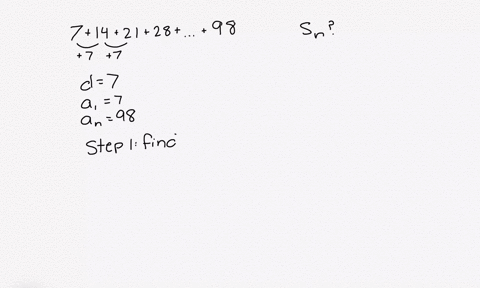 7+14+21+28+...+98 Sn?
+7 +7
d=7
a₁=7
aₙ=98
Step 1: find